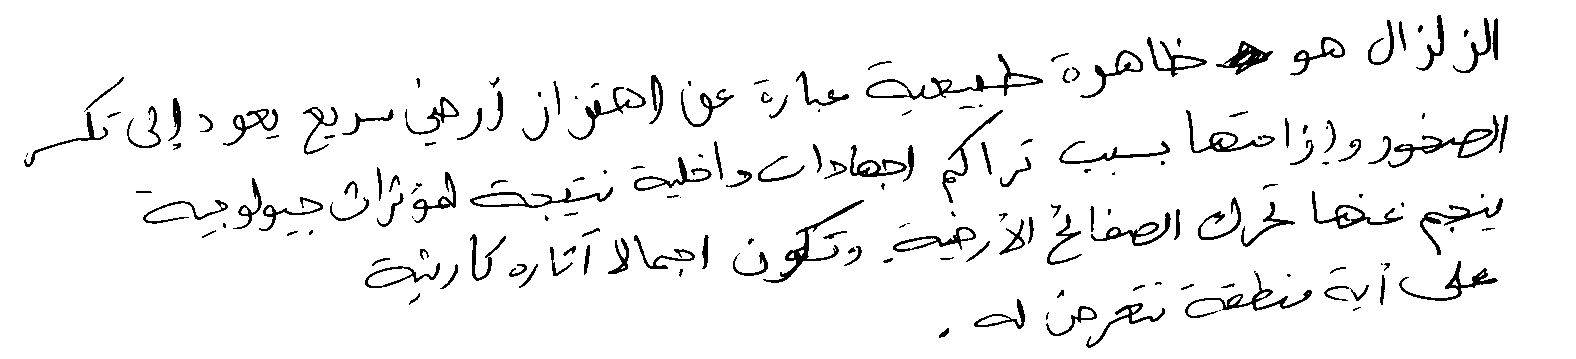 الزلزال هو ظاهرة طبيعية عبارة عن اهتزاز أرضي سريع يعود إلى تكسر
الصخور وإزاحتها بسبب تراكم اجهادات داخلية نتيجة لمؤثرات جيولوجية
ينجم عنها تحرك الصفائح الأرضية. وتكون اجمالا آثاره كارثية
على أية منطقة تتعرض له.